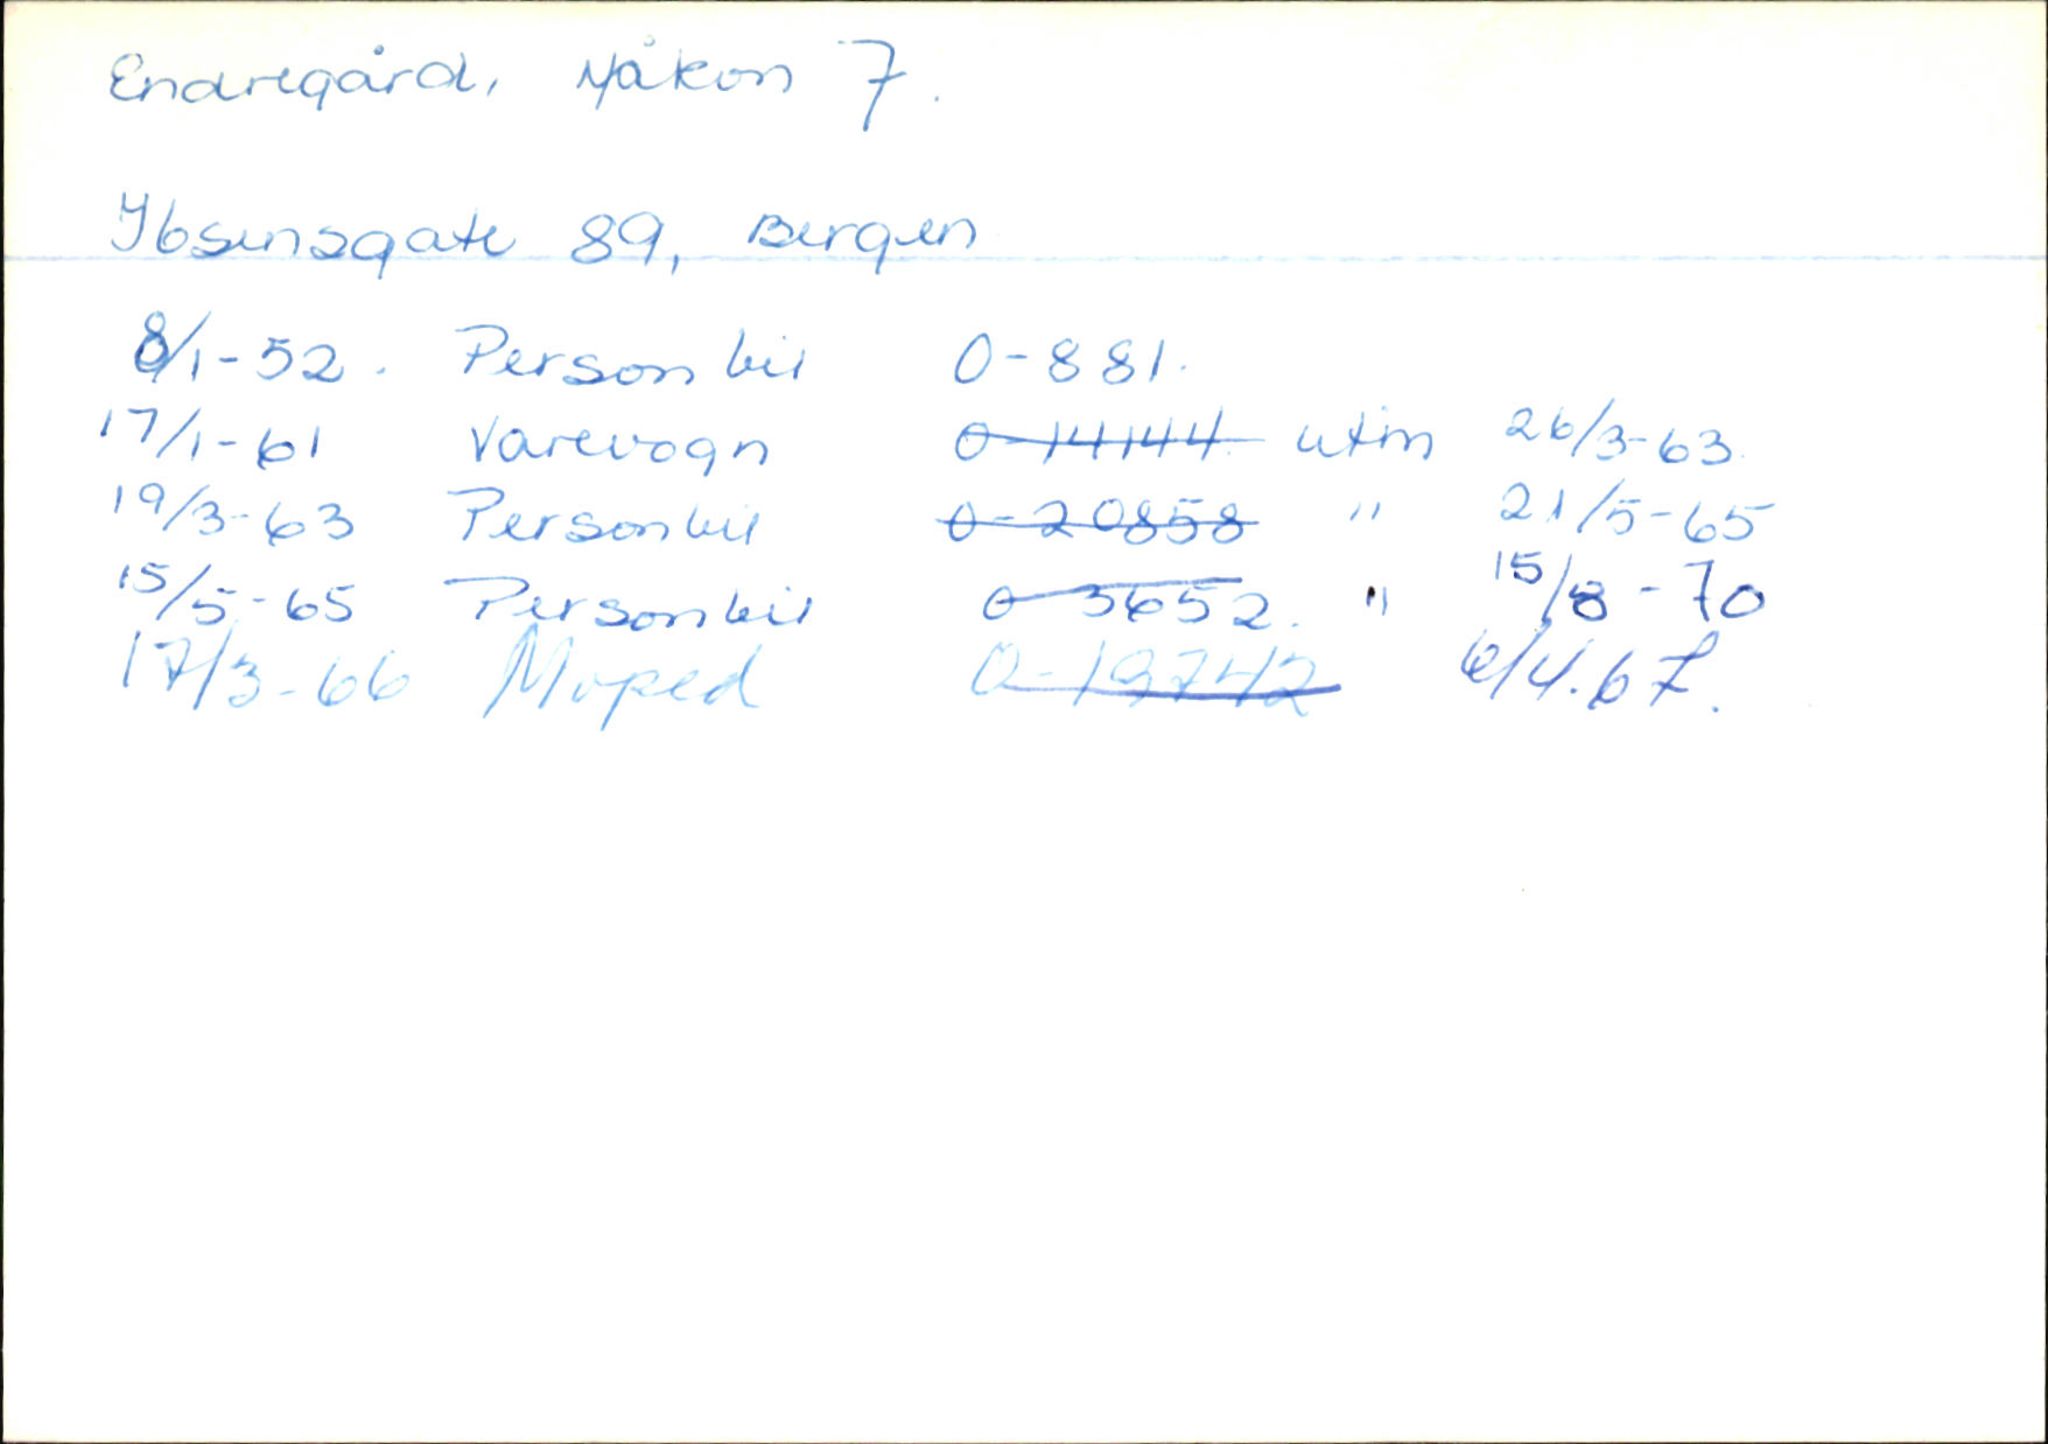 Endregård, Håkon 7.
Ibsensgate 89, Bergen
8/1-52. Personbil O-881.
17/1-61 Varevogn O-14144. utm 26/3-63.
19/3-63 Personbil O-20858 " 21/5-65
15/5-65 Personbil O-3652. " 15/8-70
17/3-66 Moped O-19742 6/4.67.